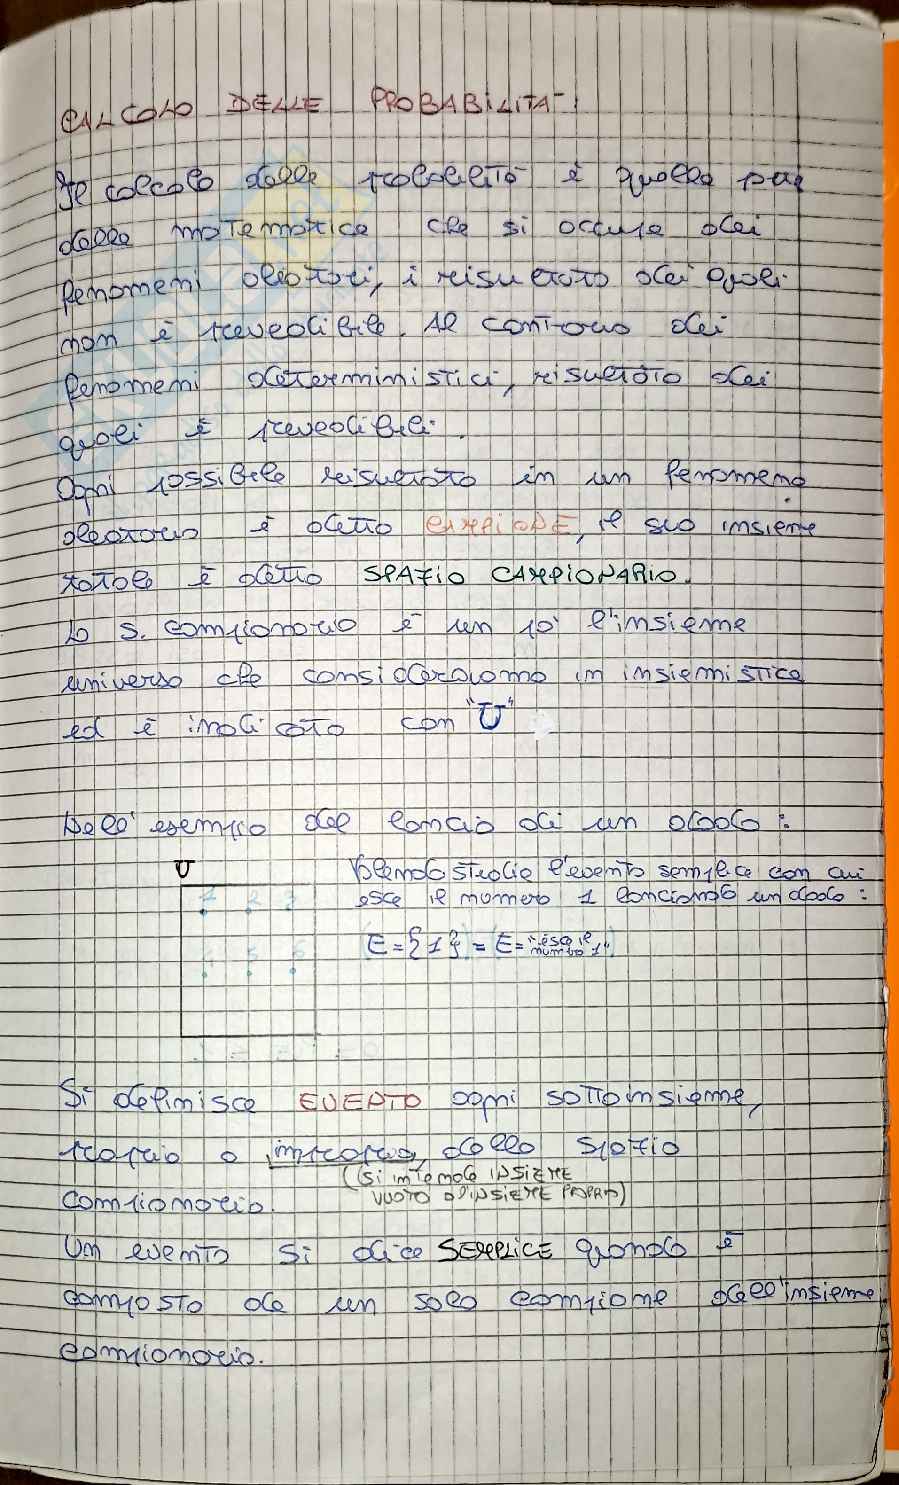 CALCOLO DELLE PROBABILITA'
Il calcolo delle probabilità è quella
della matematica che si occupa dei
fenomeni aleatori, i risultato dei quali
non è prevedibile. Al contrario dei
fenomeni deterministici, risultato dei
quali è prevedibili.
Ogni possibile risultato in un fenomeno
aleatorio è detto CAMPIONE, il suo insieme
totale è detto SPAZIO CAMPIONARIO.
Lo s. campionario è un po' l'insieme
universo che consideravamo in insiemistica
ed è indicato con "U"
Dell' esempio del lancio di un dado:
U
Volendo studia l'evento semplice con cui
esce il numero 1 lanciando un dado:
1 2 3
E = {1} = E = "esce il
numero 1"
4 5 6
Si definisce EVENTO ogni sottoinsieme,
proprio o improprio, dello spazio
(si intende INSIEME
VUOTO O INSIEME PROPRIO)
campionario.
Un evento si dice SEMPLICE quando è
composto da un solo campione dell'insieme
campionario.